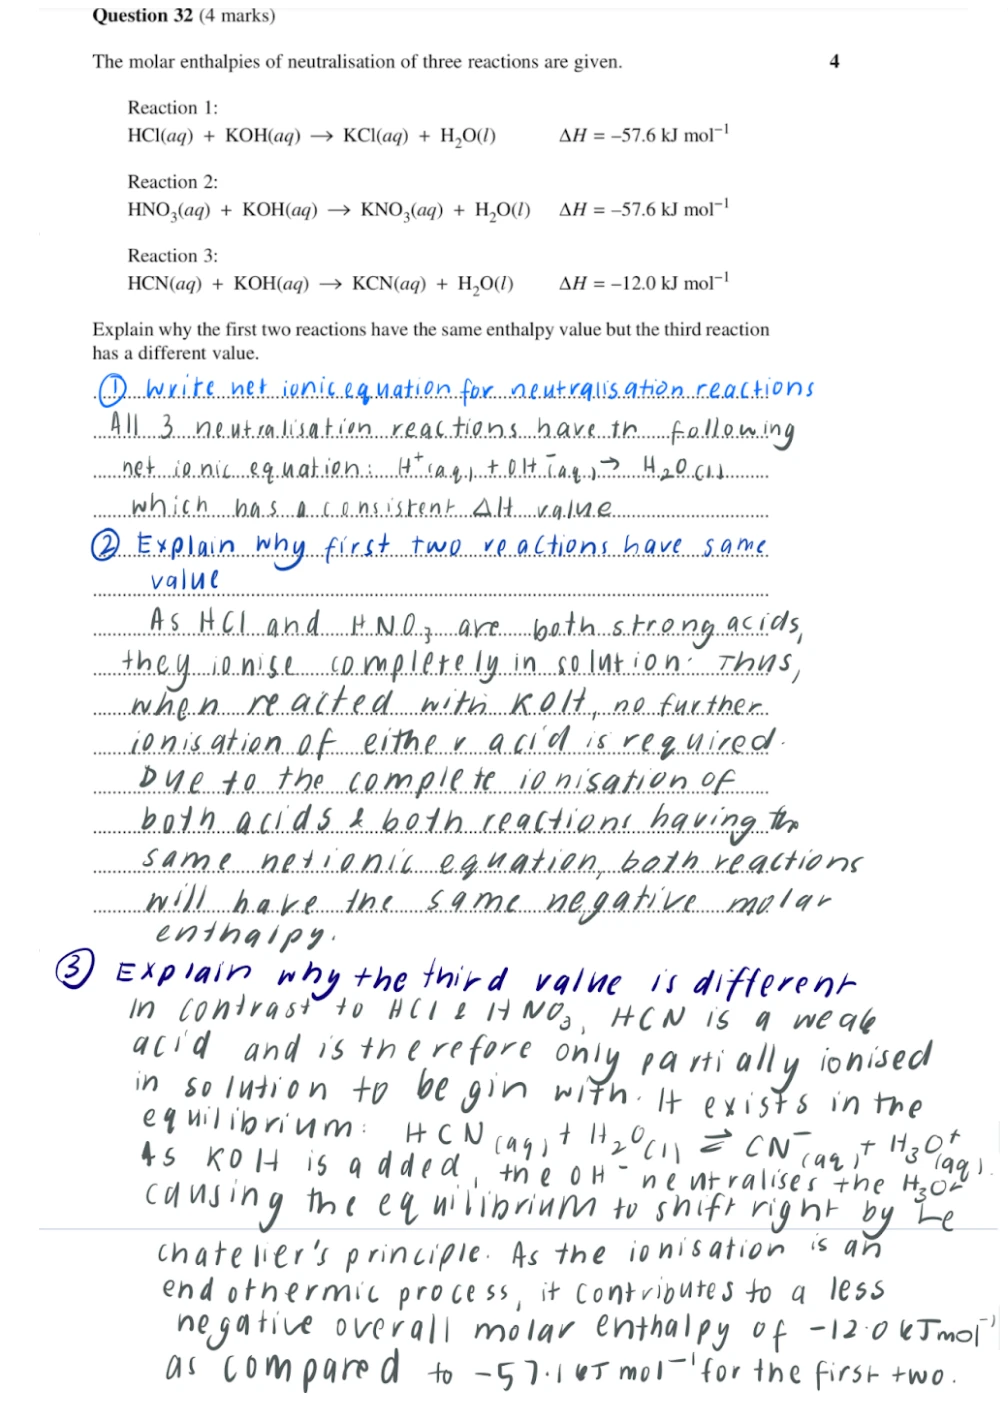 Question 32 (4 marks)
The molar enthalpies of neutralisation of three reactions are given. 4
Reaction 1:
HCl(aq) + KOH(aq) → KCl(aq) + H₂O(l) ΔH = –57.6 kJ mol⁻¹
Reaction 2:
HNO₃(aq) + KOH(aq) → KNO₃(aq) + H₂O(l) ΔH = –57.6 kJ mol⁻¹
Reaction 3:
HCN(aq) + KOH(aq) → KCN(aq) + H₂O(l) ΔH = –12.0 kJ mol⁻¹
Explain why the first two reactions have the same enthalpy value but the third reaction
has a different value.
① Write net ionic equation for neutralisation reactions
All 3 neutralisation reactions have th following
net ionic equation: H⁺(aq) + OH⁻(aq) → H₂O(l)
which has a consistent ΔH value
② Explain why first two reactions have same
value
As HCl and HNO₃ are both strong acids,
they ionise completely in solution. Thus,
when reacted with KOH, no further
ionisation of either acid is required.
Due to the complete ionisation of
both acids & both reactions having the
same net ionic equation, both reactions
will have the same negative molar
enthalpy.
③ Explain why the third value is different
In contrast to HCl & HNO₃, HCN is a weak
acid and is therefore only partially ionised
in solution to begin with. It exists in the
equilibrium: HCN(aq) + H₂O(l) ⇌ CN⁻(aq) + H₃O⁺(aq).
As KOH is added, the OH⁻ neutralises the H₃O⁺
causing the equilibrium to shift right by Le
chatelier's principle. As the ionisation is an
endothermic process, it contributes to a less
negative overall molar enthalpy of -12.0 kJmol⁻¹
as compared to -57.1 kJ mol⁻¹ for the first two.